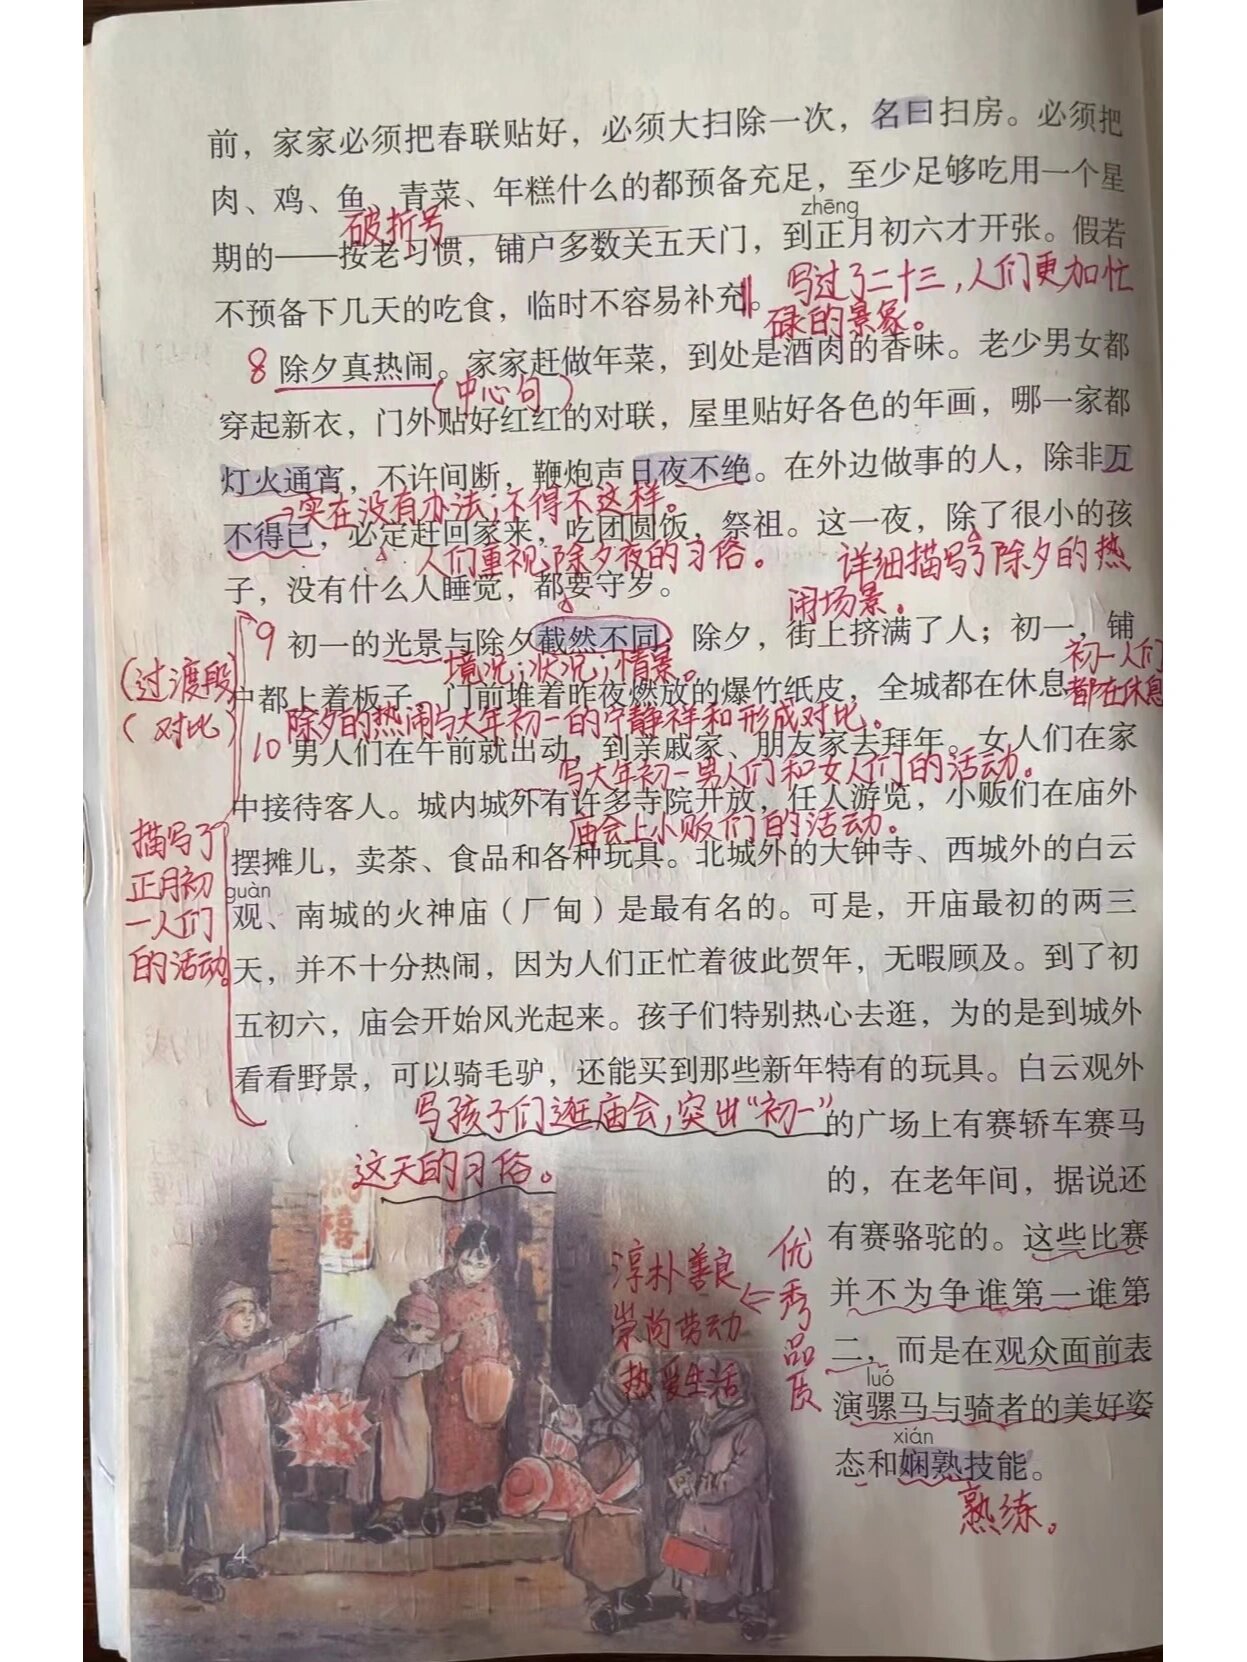 前，家家必须把春联贴好，必须大扫除一次，名曰扫房。必须把
肉、鸡、鱼、青菜、年糕什么的都预备充足，至少足够吃用一个星
破折号
zhēng
期的——按老习惯，铺户多数关五天门，到正月初六才开张。假若
不预备下几天的吃食，临时不容易补充。
写过了二十三，人们更加忙
碌的景象。
8 除夕真热闹。家家赶做年菜，到处是酒肉的香味。老少男女都
（中心句）
穿起新衣，门外贴好红红的对联，屋里贴好各色的年画，哪一家都
灯火通宵，不许间断，鞭炮声日夜不绝。在外边做事的人，除非万
→实在没有办法；不得不这样。
不得已，必定赶回家来，吃团圆饭，祭祖。这一夜，除了很小的孩
人们重视除夕夜的习俗。
详细描写了除夕的热
闹场景。
子，没有什么人睡觉，都要守岁。
9 初一的光景与除夕截然不同：除夕，街上挤满了人；初一，铺
境况；状况；情景。
初一人们
都在休息
（过渡段）
（对比）
中都上着板子，门前堆着昨夜燃放的爆竹纸皮，全城都在休息。
除夕的热闹与大年初一的宁静祥和形成对比。
10 男人们在午前就出动，到亲戚家、朋友家去拜年。女人们在家
写大年初一男人们和女人们的活动。
中接待客人。城内城外有许多寺院开放，任人游览，小贩们在庙外
庙会上小贩们的活动。
描写了
正月初
一人们
的活动。
摆摊儿，卖茶、食品和各种玩具。北城外的大钟寺、西城外的白云
guàn
观、南城的火神庙（厂甸）是最有名的。可是，开庙最初的两三
天，并不十分热闹，因为人们正忙着彼此贺年，无暇顾及。到了初
五初六，庙会开始风光起来。孩子们特别热心去逛，为的是到城外
看看野景，可以骑毛驴，还能买到那些新年特有的玩具。白云观外
写孩子们逛庙会，突出“初一”
这天的习俗。
的广场上有赛轿车赛马
的，在老年间，据说还
有赛骆驼的。这些比赛
并不为争谁第一谁第
二，而是在观众面前表
luó
演骡马与骑者的美好姿
xián
态和娴熟技能。
熟练。
优秀品质
淳朴善良
崇尚劳动
热爱生活
禧
4